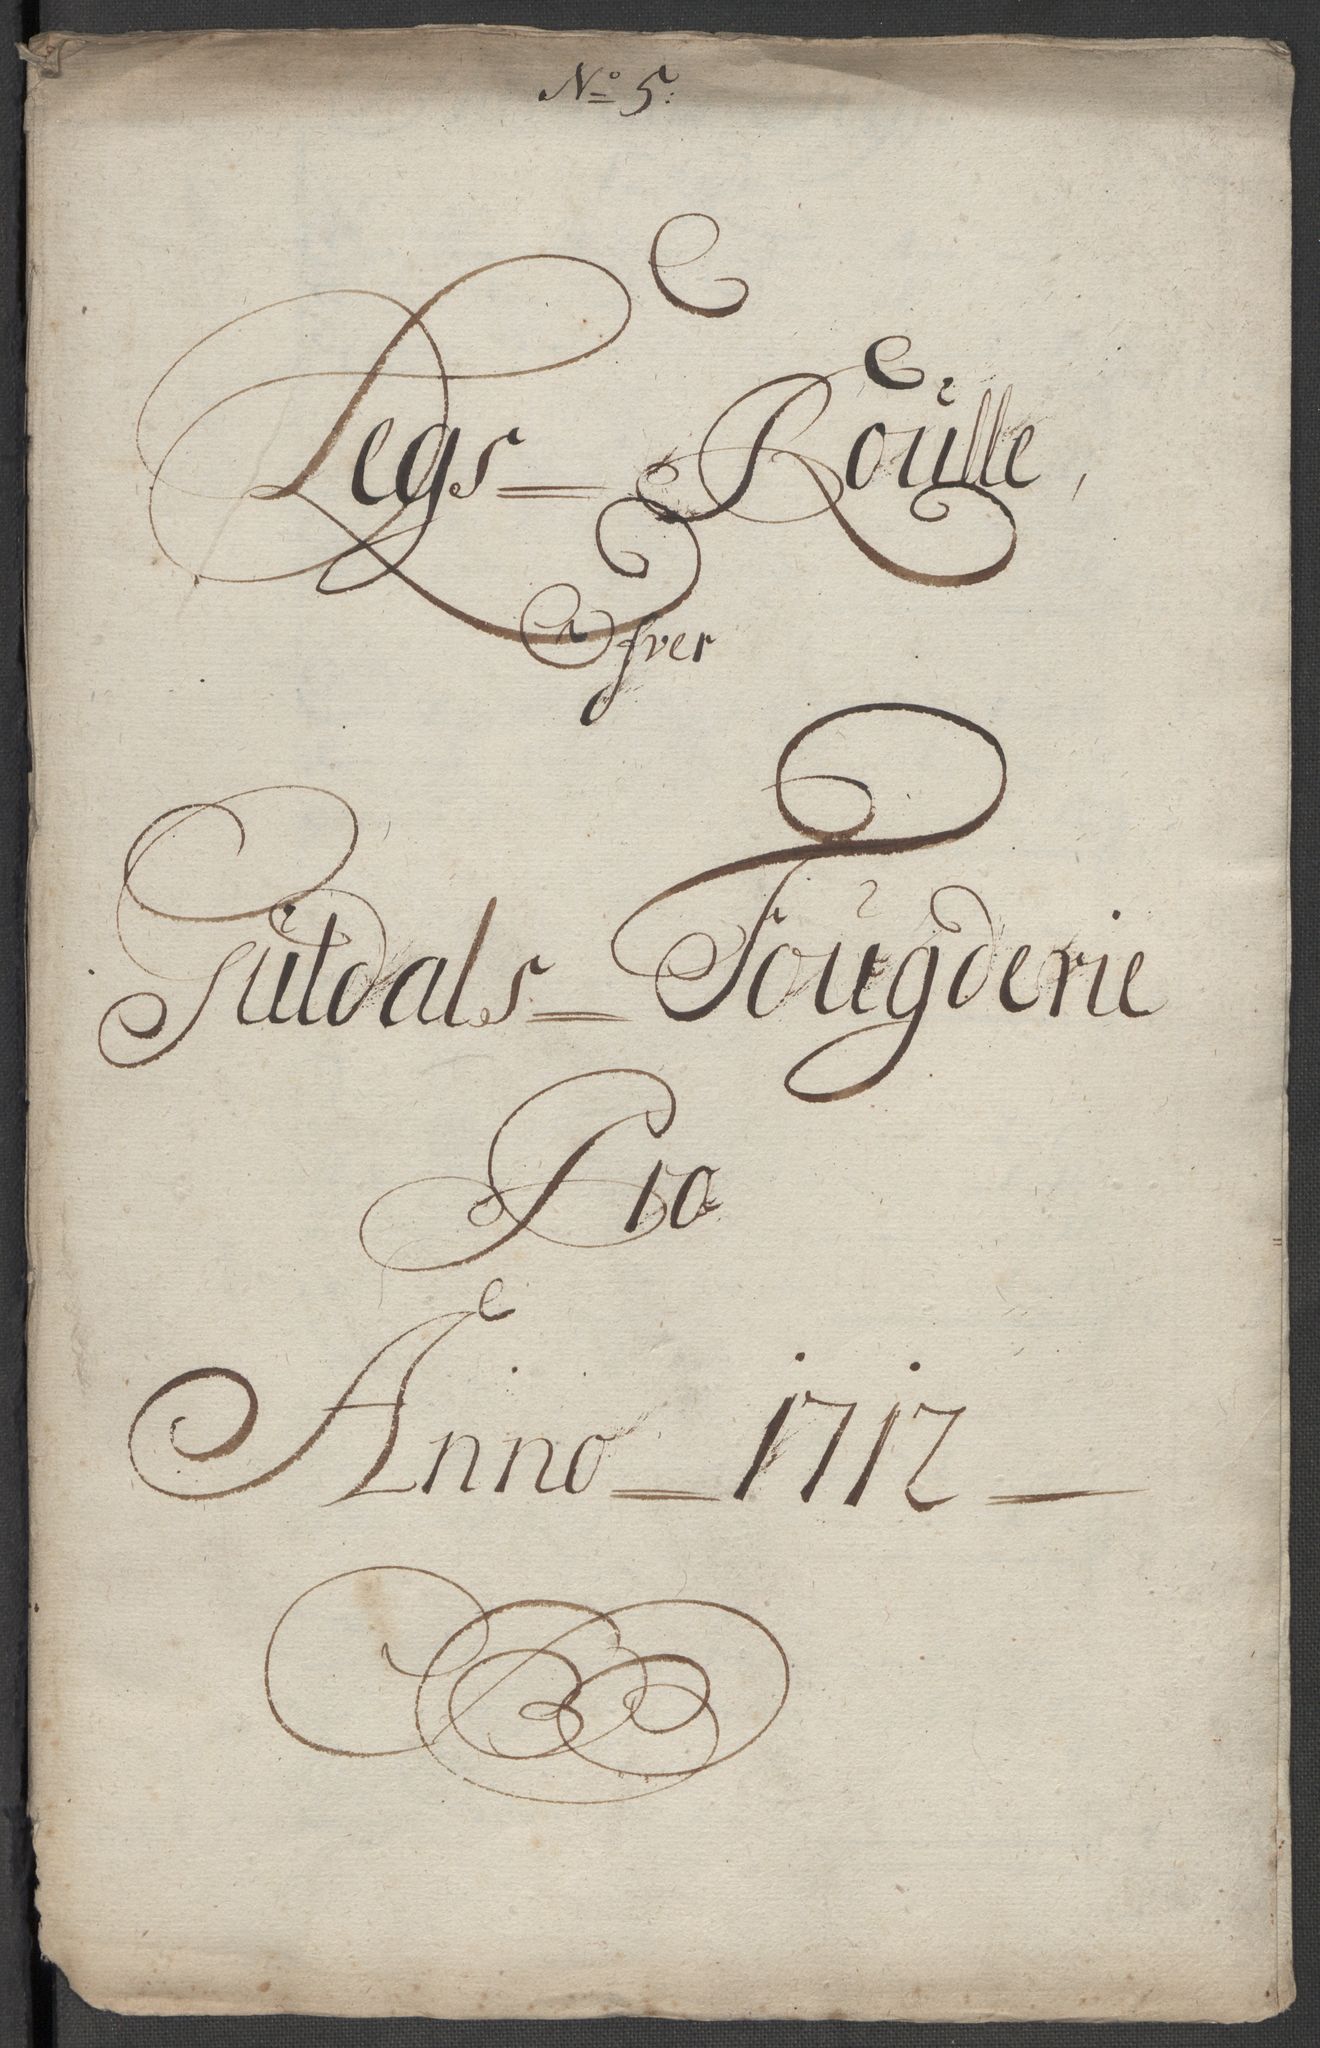 No 5:
Legs = Roülle,
Ofver
Guldals = Fougderie
Pro
Anno = 1712 =